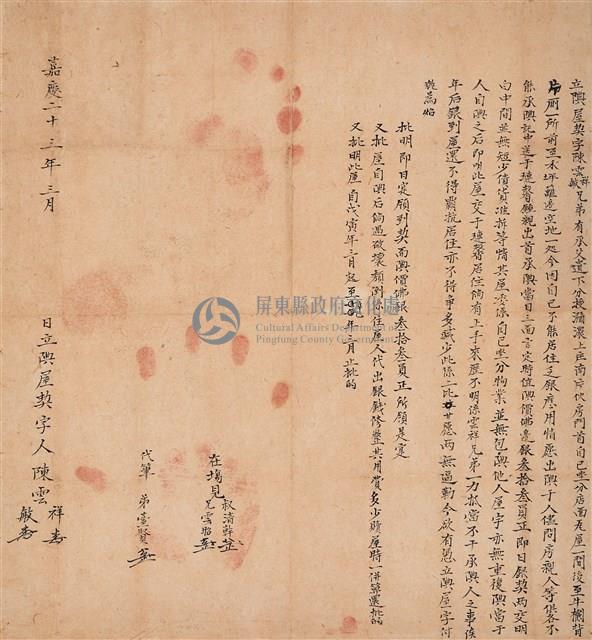 立興屋契字陳雲祥敏兄弟有承父遺下分授瀰濃上庄南片伙房門首自己坐分店面瓦屋一間後至牛欄背
片副一所前至禾坪籬邊空地一処今因自己不能居住乏銀應用情愿出興于人儘問房親人等俱各不
能承興託中送于 出首承興當日三面言定時值興價佛邊銀叁拾叁員正即日銀契両交明
白中間並無短少債貨准拆等情其屋委係自己坐分物業並無包興他人屋宇亦無重復興當于
人自興之后即明此屋交于 居住倘有上手來歷不明係雲祥兄弟一力抵當不干承興人之事俟
年后銀到屋還不得霸抗居住亦不得事多減少此係二比甘愿両無逼勒今欲有憑立興屋字付
執為炤
批明即日定願到契面興價佛銀叁拾叁員正所願是寔
又批屋自興后倘遇破壞頹倒係住屋人代出銀錢修整共用費多少贖屋時一併築還批的
又批明此屋自戊寅年三月起至 年三月止批的
嘉慶二十三年三月
日立興屋契字人陳雲祥敏
在場見叔清
兄雲
代筆弟臺賢
屏東縣政府文化處
Cultural Affairs Department,
Pingtung County Government